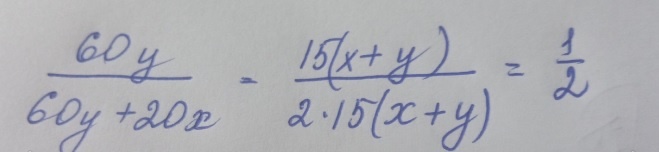 60y / (60y+20x) - 15(x+y) / (2·15(x+y)) = 1/2